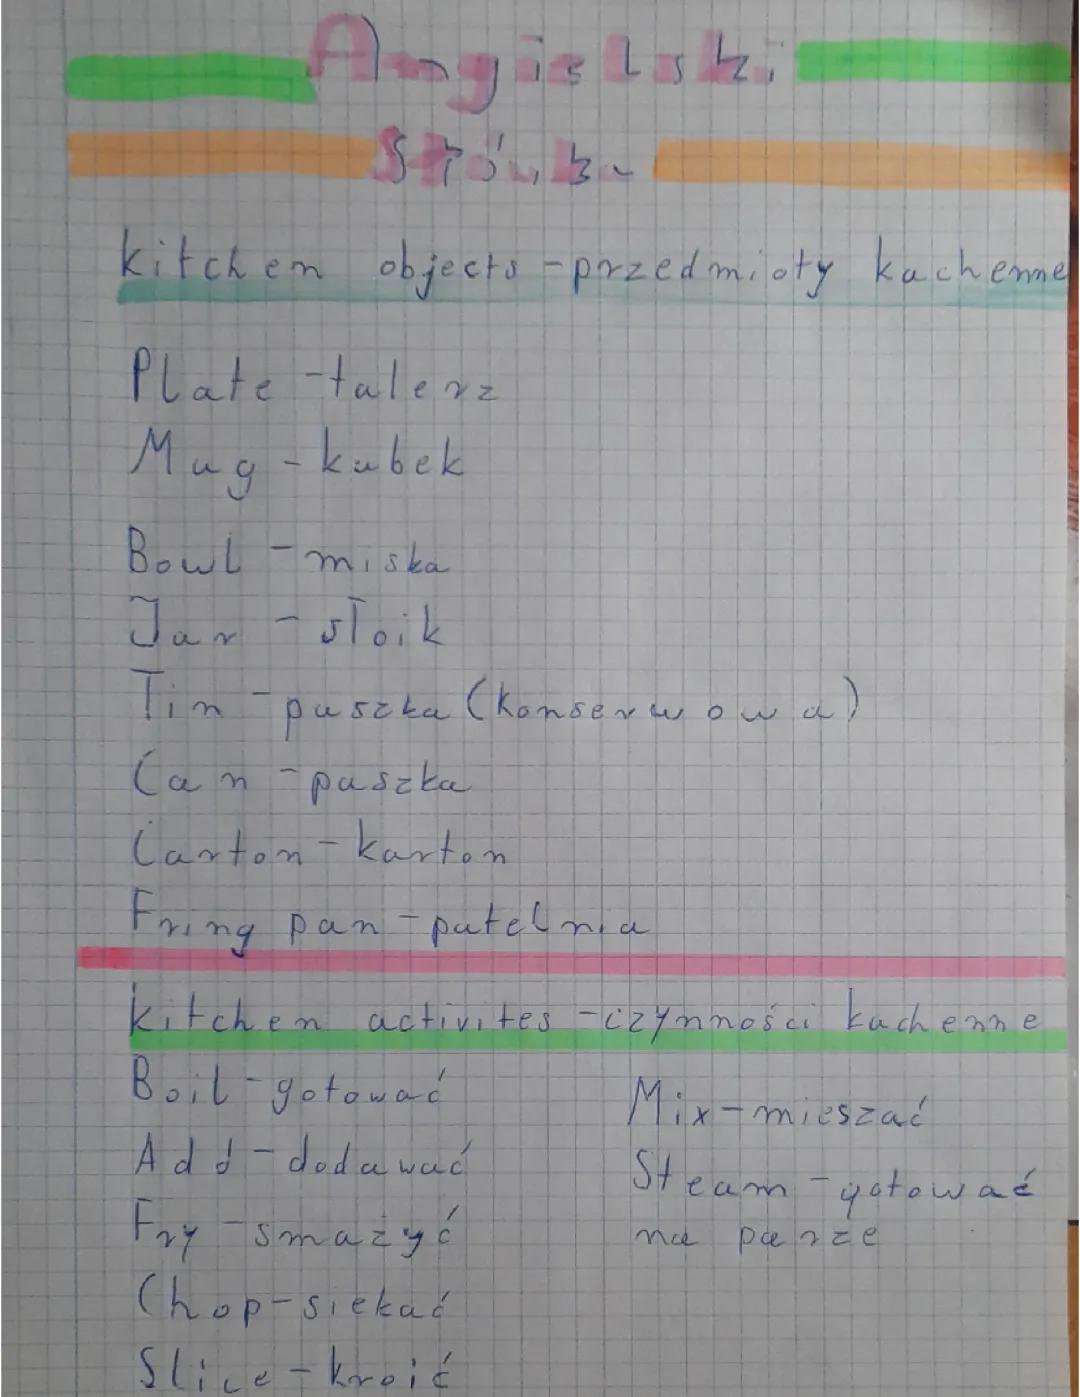 Angielski
Słówka
kitchen objects - przedmioty kuchenne
Plate - talerz
Mug - kubek
Bowl - miska
Jar - słoik
Tin - puszka (konserwowa)
Can - puszka
Carton - karton
Fring pan - patelnia
kitchen activites - czynności kuchenne
Boil - gotować
Add - dodawać
Fry - smażyć
Chop - siekać
Slice - kroić
Mix - mieszać
Steam - gotować
na parze